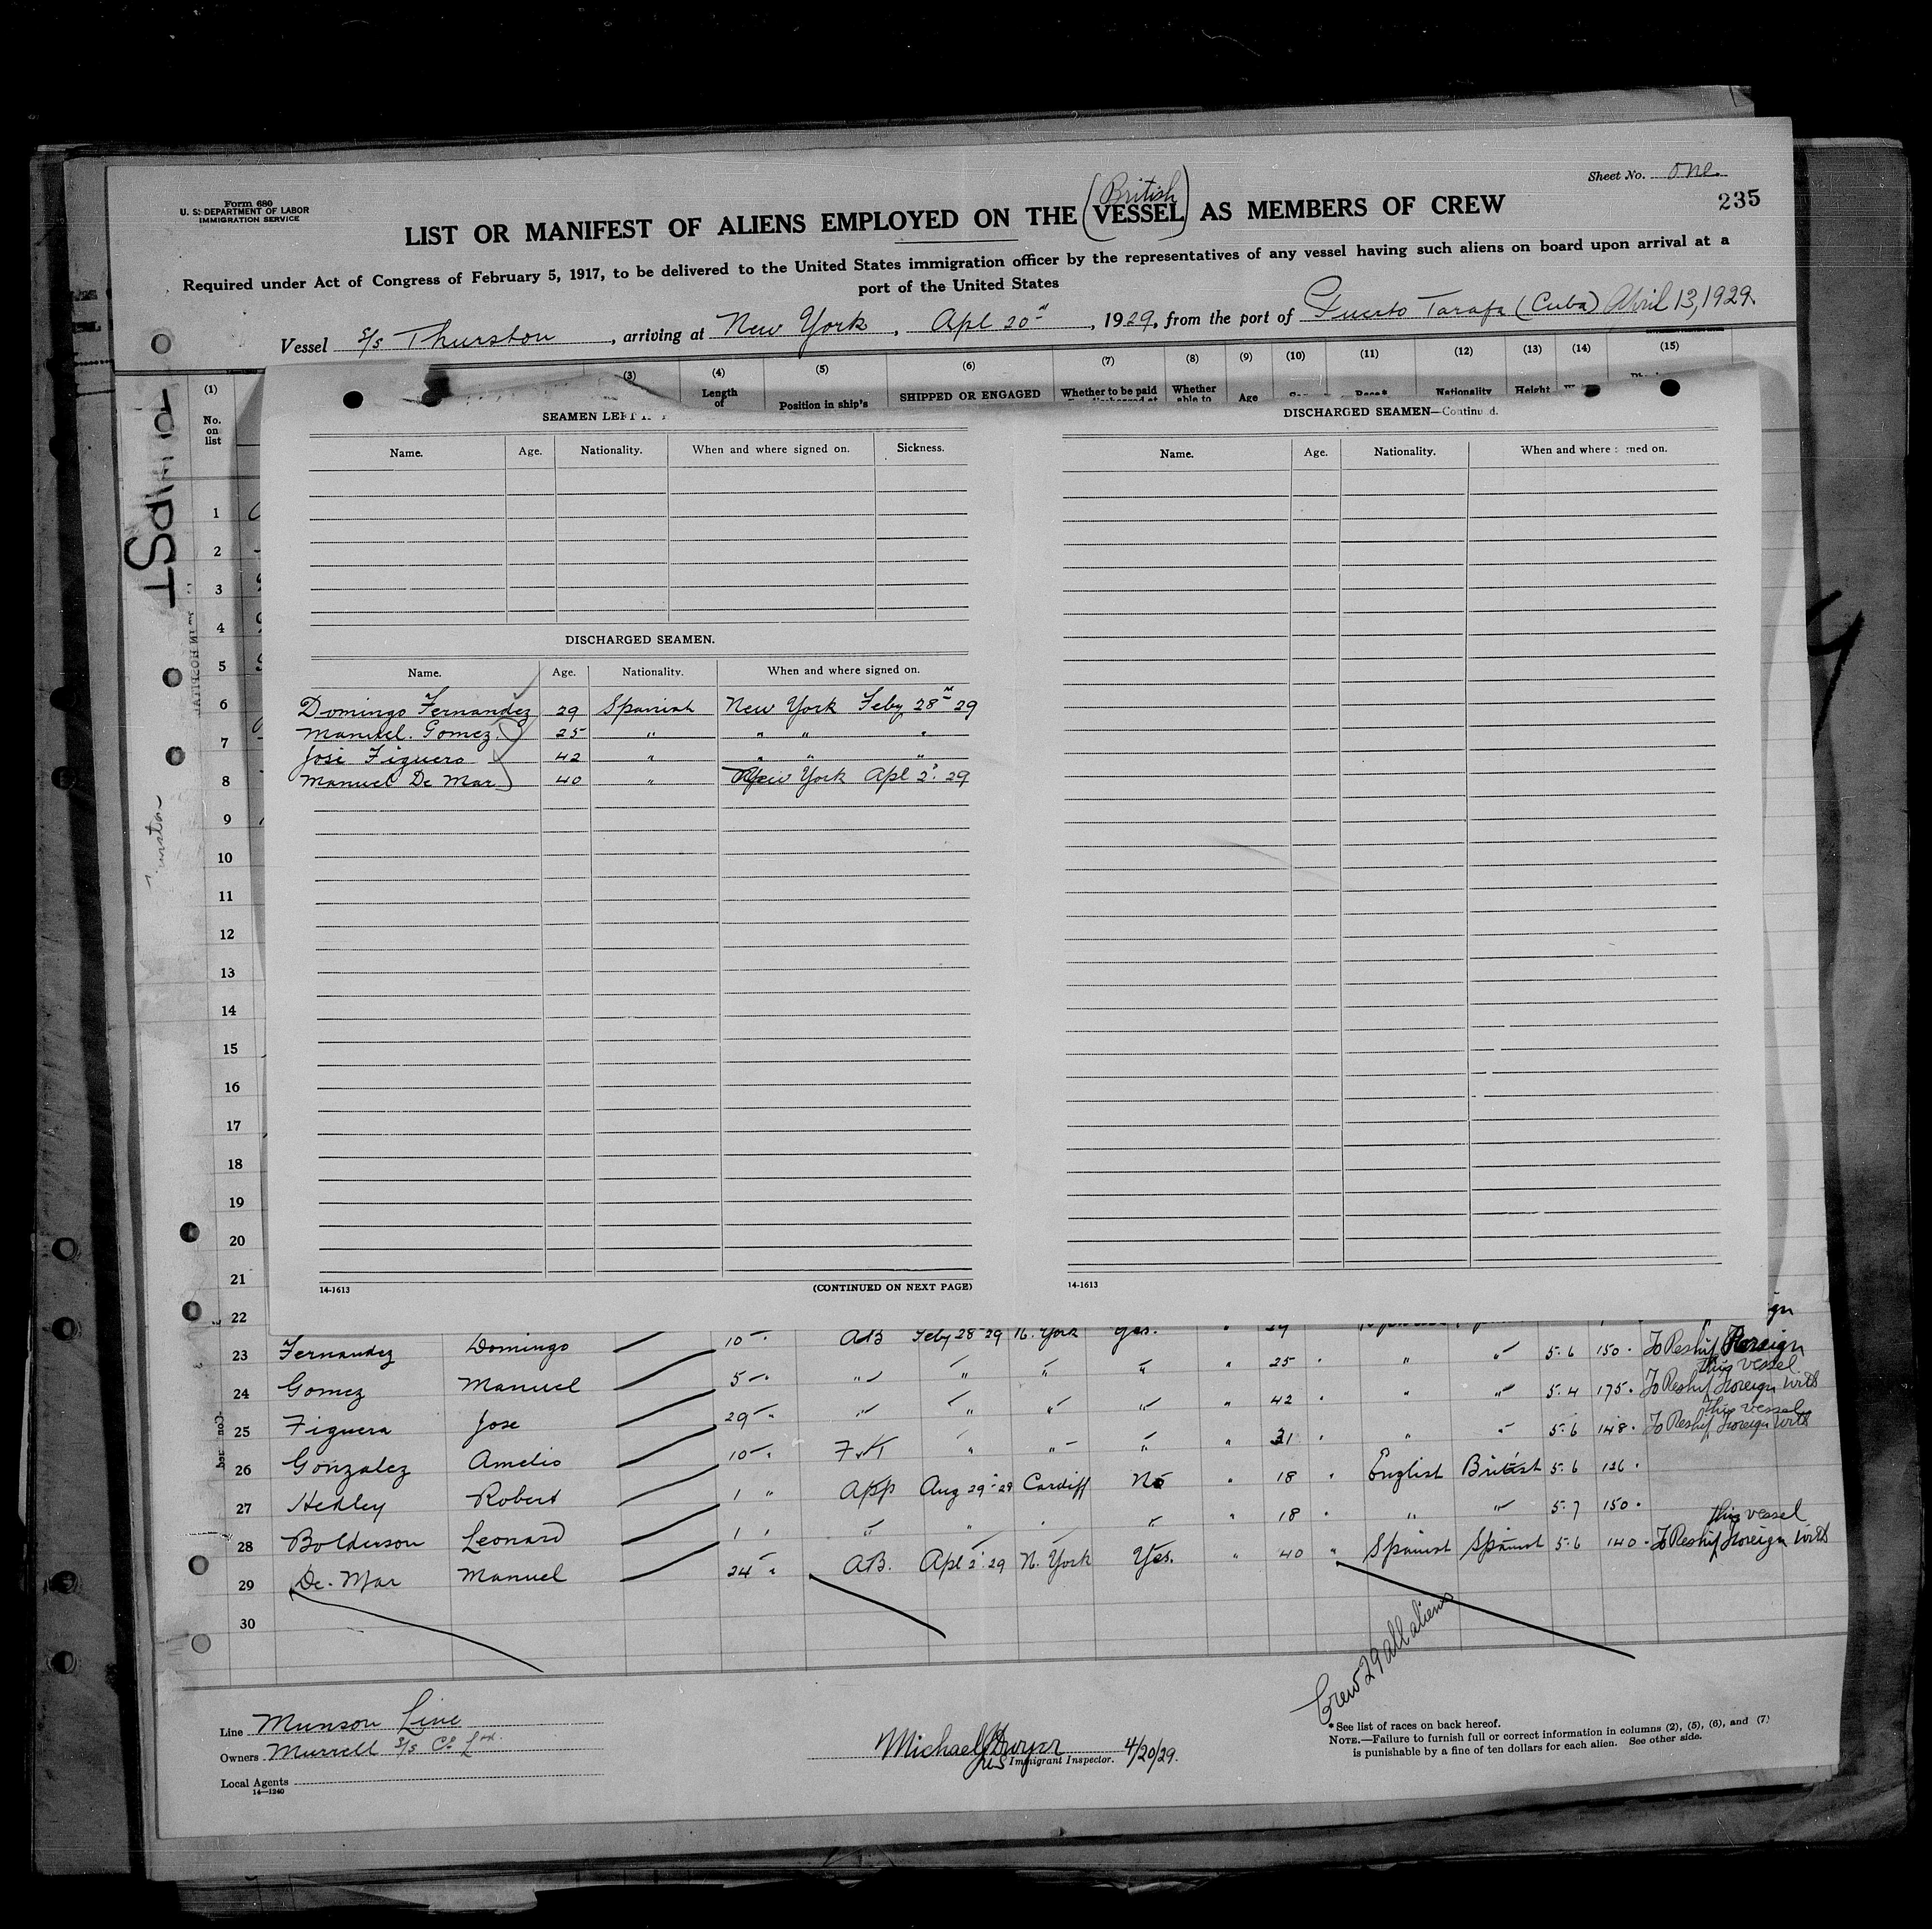 Sheet No. one.
235
Form 680
U. S. DEPARTMENT OF LABOR
IMMIGRATION SERVICE
(British)
LIST OR MANIFEST OF ALIENS EMPLOYED ON THE VESSEL AS MEMBERS OF CREW
Required under Act of Congress of February 5, 1917, to be delivered to the United States immigration officer by the representatives of any vessel having such aliens on board upon arrival at a
port of the United States
Vessel S/S Thurston, arriving at New York, Apl 20th, 1929, from the port of Puerto Tarafa (Cuba) April 13, 1929.
(1) (3) (4) (5) (6) (7) (8) (9) (10) (11) (12) (13) (14) (15)
No. on list
Length of
Position in ship's
SHIPPED OR ENGAGED
Whether to be paid
Whether able to
Age
Race*
Nationality
Height
TSPIHP
SEAMEN LEFT
Name. Age. Nationality. When and where signed on. Sickness.
DISCHARGED SEAMEN.
Name. Age. Nationality. When and where signed on.
Domingo Fernandez 29 Spanish New York Feby 28th 29
Manuel. Gomez. 25 " " " "
José Figuero 42 " " " "
Manuel De Mar 40 " New York Apl 2d. 29
14-1613 (CONTINUED ON NEXT PAGE)
DISCHARGED SEAMEN—Continued.
Name. Age. Nationality. When and where signed on.
14-1613
1
2
3
4
5
6
7
8
9
10
11
12
13
14
15
16
17
18
19
20
21
22
23 Fernandez Domingo 10 " AB Feby 28-29 N. York Yes. " 29
24 Gomez Manuel 5 " " " " " " 25 " " " 5.6 150. To Reship Foreign
this vessel
25 Figuera Jose 29 " " " " " " 42 " " " 5.4 175. To Reship Foreign with
this vessel
26 Gonzalez Amelio 10 " F&T " " " " 31 " " " 5.6 148. To Reship Foreign with
27 Hedley Robert 1 " App Aug 29-28 Cardiff No " 18 " English British 5.6 136.
28 Bolderson Leonard 1 " " " " " " 18 " " " 5.7 150.
this vessel
29 De. Mar Manuel 24 " AB. Apl 2. 29 N. York Yes. " 40 " Spanish Spanish 5.6 140. To Reship Foreign with
30
Crew 29 all aliens
Line Munson Line
Owners Murrell S/S Co Ltd.
Local Agents
14—1240
Michael J Dwyer
Immigrant Inspector. 4/20/29.
*See list of races on back hereof.
NOTE.—Failure to furnish full or correct information in columns (2), (5), (6), and (7)
is punishable by a fine of ten dollars for each alien. See other side.